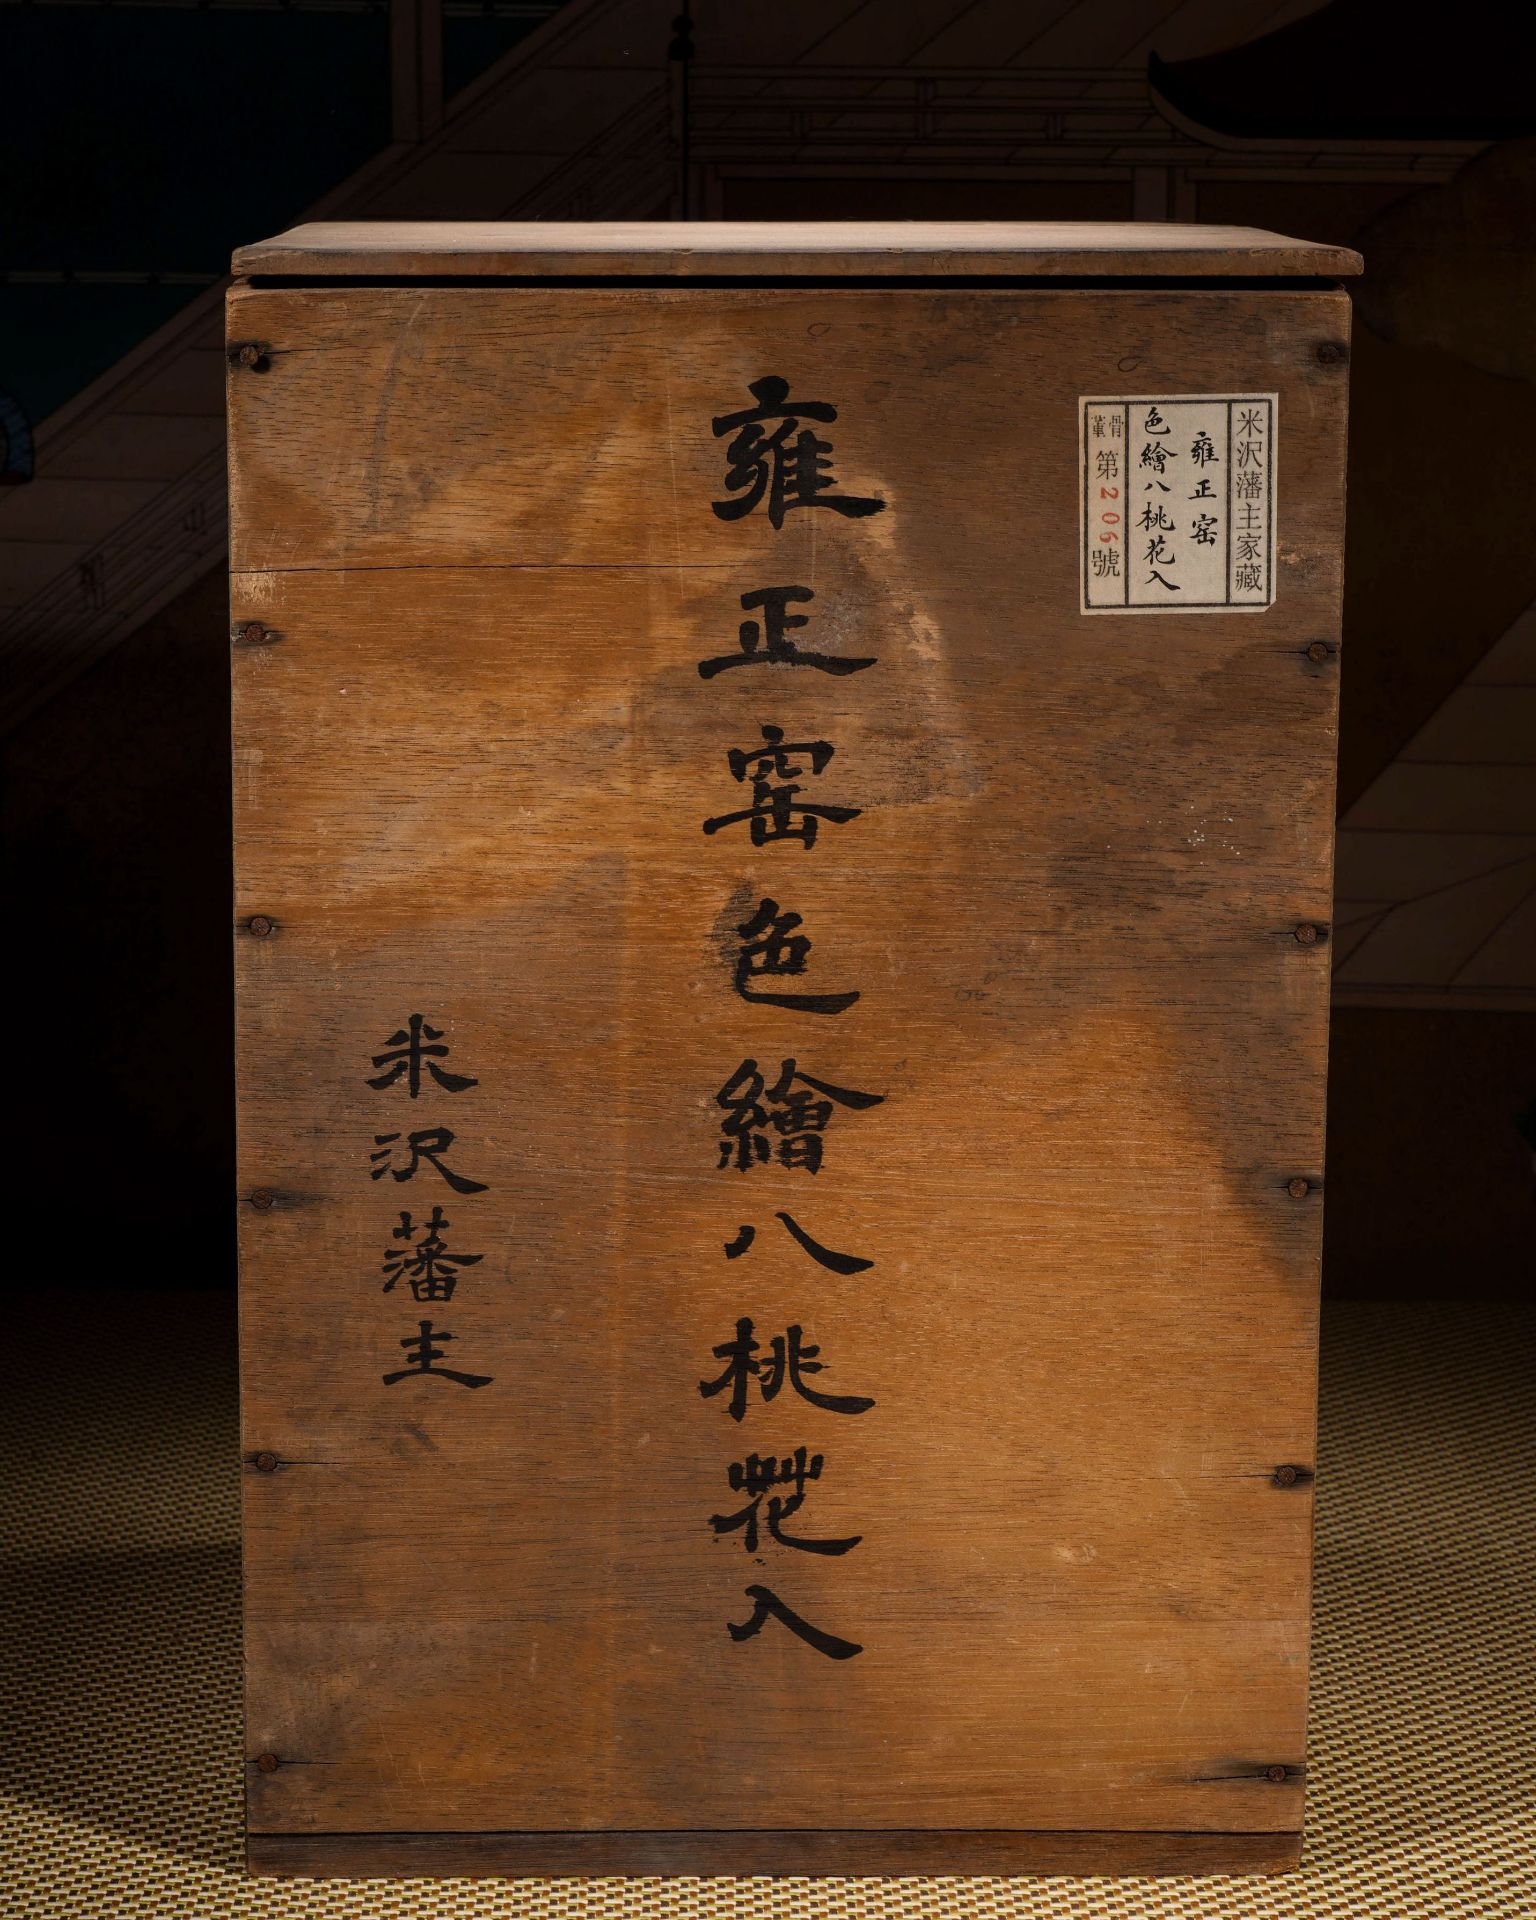 米沢藩主家藏
雍正窑
色繪八桃花入
骨董
第206號
雍正窑色繪八桃花入
米沢藩主